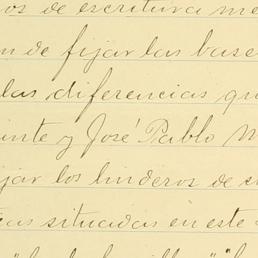 os de escritura me
n de fijar las base
las diferencias qu
inte y José Pablo M
jar los linderos de s
cas situadas en este